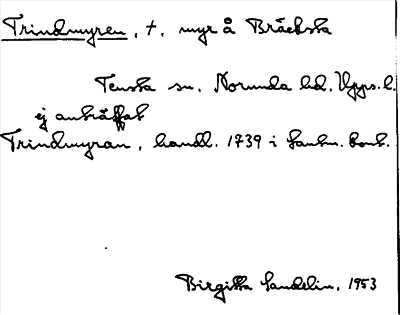 Trindmyren, †, myr å Bräcksta
Tensta sn. Norunda hd. Upps. l.
ej anträffat
Trindmyran, handl. 1739 i Lantm. kont.
Birgitta Sandelin, 1953